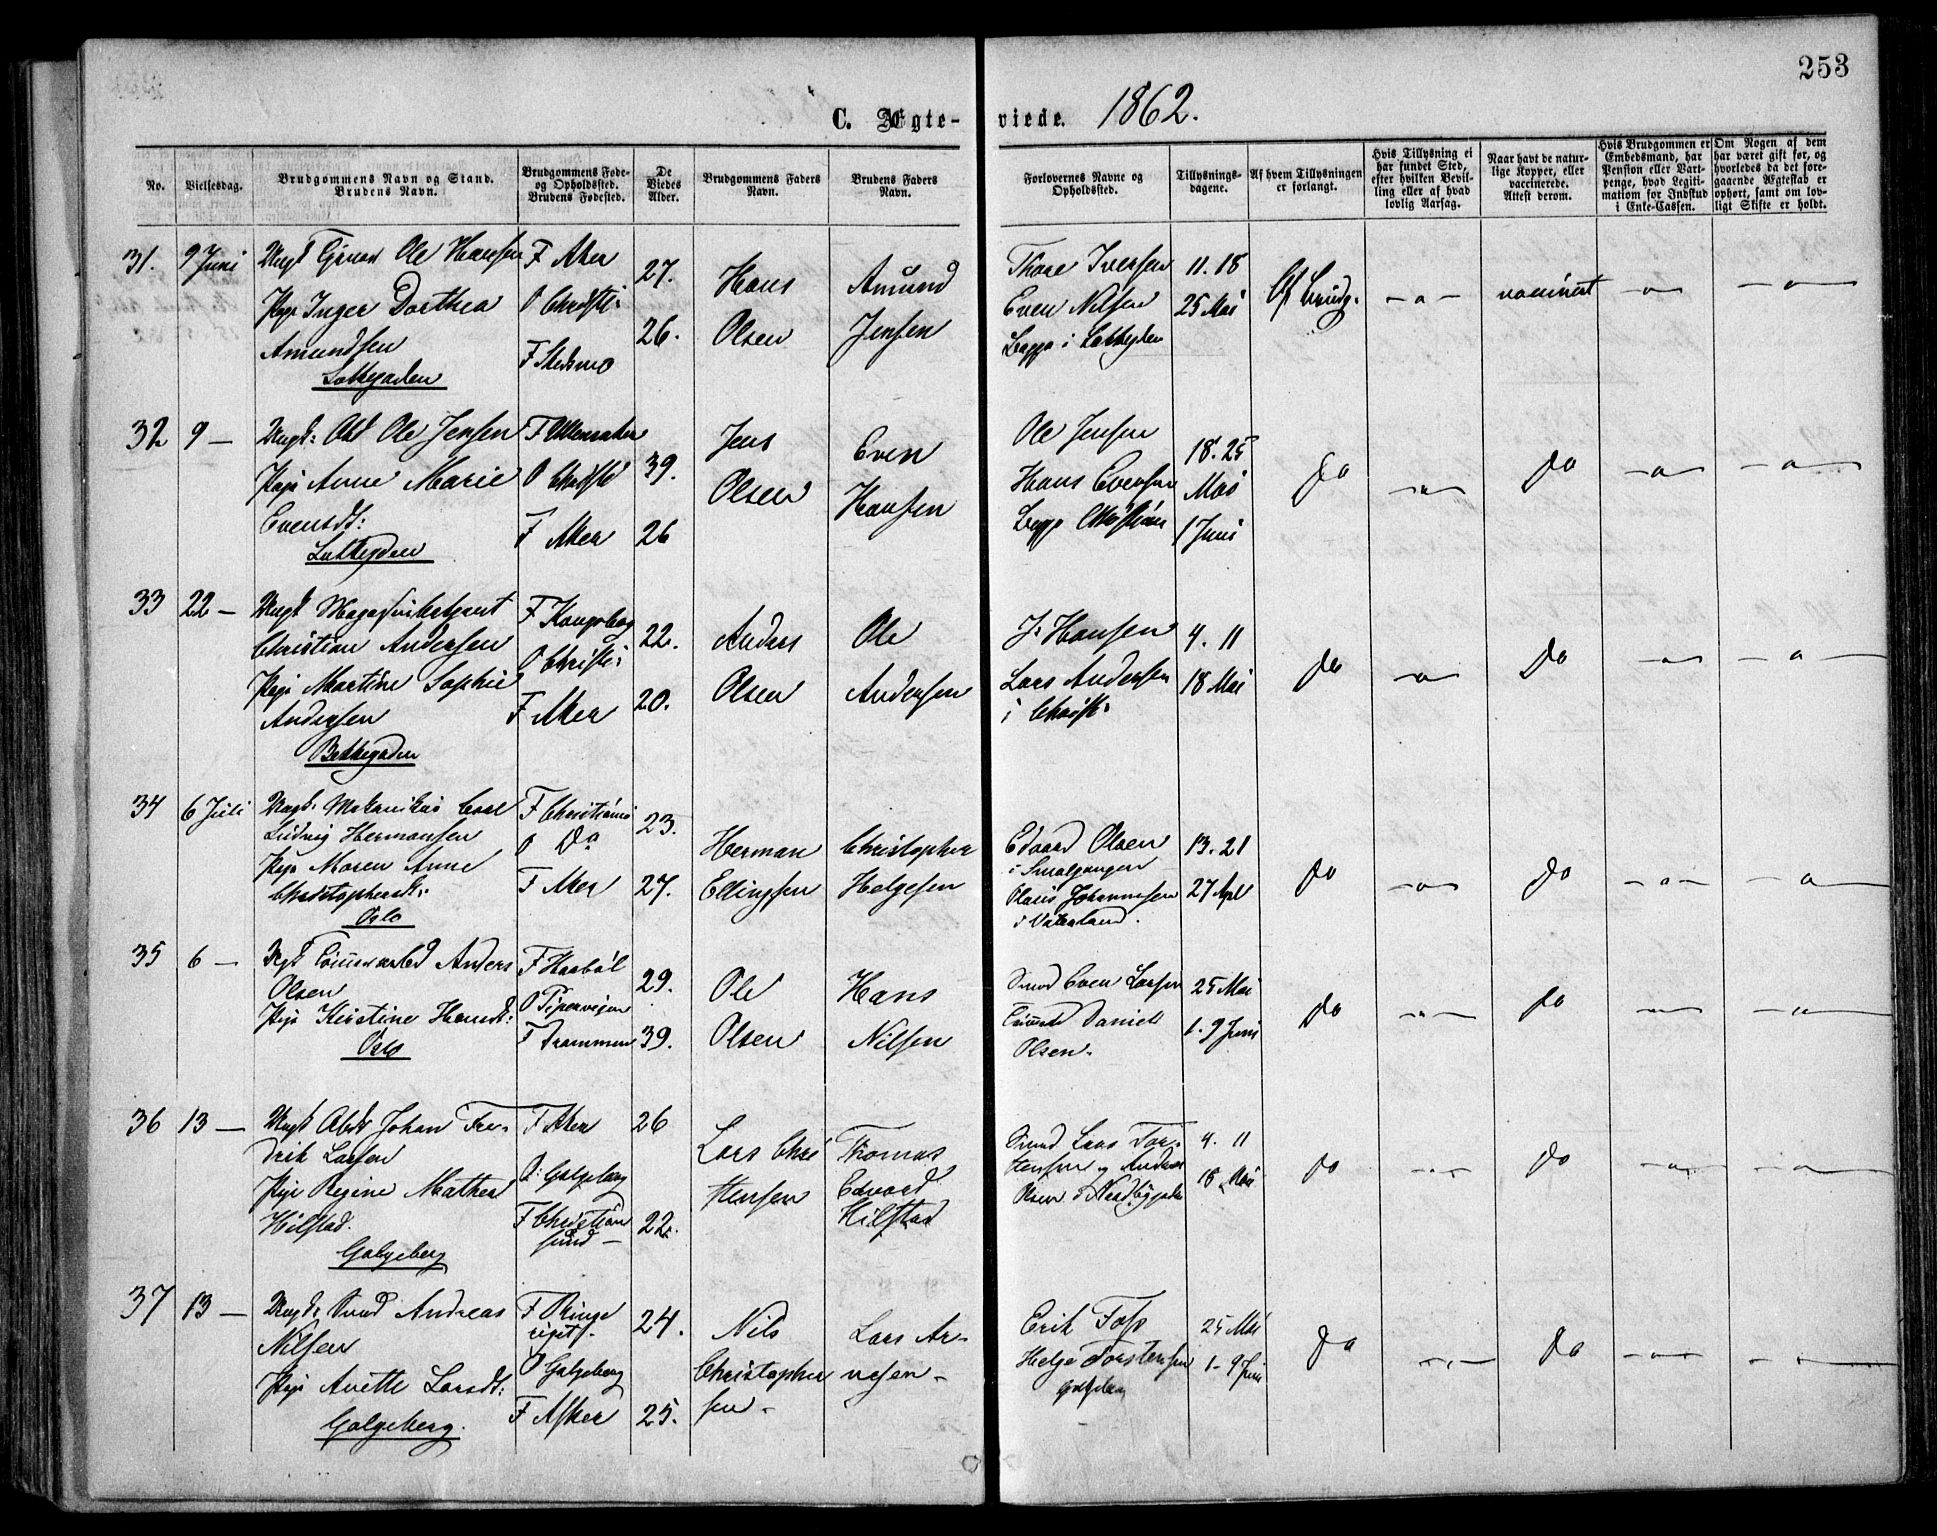 253
C. Ægte-
viede. 1862.
No.
Vielsesdag.
Brudgommens Navn og Stand.
Brudens Navn.
Brudgommens Føde-
og Opholdssted.
Brudens Fødested.
De
Viedes
Alder.
Brudgommens Faders
Navn.
Brudens Faders
Navn.
Forlovernes Navne og
Opholdssted.
Tillysnings-
dagene.
Af hvem Tillysningen
er forlangt.
Hvis Tillysning ei
har fundet Sted,
efter hvilken Bevil-
ling eller af hvad
lovlig Aarsag.
Naar havt de natur-
lige Kopper, eller
vaccinerede.
Attest derom.
Hvis Brudgommen er
Embedsmand, har
Pension eller Vart-
penge, hvad Legiti-
mation for Indskud
i Enke-Cassen.
Om Nogen af dem
har været gift før, og
hvorledes da det fore-
gaaende Ægteskab er
ophørt, samt om lov-
ligt Skifte er holdt.
31.
9 Juni
Ungk Ole Hansen
Pige Inger Dorthea
Amundsen
Lakkegaden
F Aker
O Christi:
F Skedsmo
27.
26.
Hans
Olsen
Amund
Jensen
Thore Iversen
Even Nilsen
Begge i Lakkegden
11. 18
25 Mai
Af Brudg.
- o -
vaccinert
- o -
- o -
32
9 -
Ungk: Abd Ole Jensen
Pige Anne Marie
Evensdt:
Lakkegden
F Ullensaker
O Christi
F Aker
39.
26
Jens
Olsen
Even
Hansen
Ole Jensen
Hans Evensen
Begge Christiania
18. 25
Mai
1 Juni
Do
- o -
Do
- o -
- o -
33
22 -
Ungk
Christian Andersen
Pige Martine Sophie
Andersen
Bakkegaden
F Kongsberg
O Christi:
F Aker
22.
20.
Anders
Olsen
Ole
Andersen
J. Hansen
Lars Andersen
i Christi
4. 11
18 Mai
Do
- o -
Do
- o -
- o -
34
6 Juli
Ungk: Mekanikus Carl
Ludvig Hermansen
Pige Maren Anne
Christophersdt:
Oslo
F Christiania
O Do
F Aker
23.
27.
Herman
Ellingsen
Christopher
Helgesen
Edvard Olsen
i Smalgangen
Olaus Johannesen
i Vaterland.
13. 21
27 Apl
Do
- o -
Do
- o -
- o -
35
6 -
Ungk Anders
Olsen
Pige Kirstine Hansdt:
Oslo
F Haabøl
O Pipervigen
F Drammen
29.
39.
Ole
Olsen
Hans
Nilsen
Even Larsen
Daniel
Olsen.
25 Mai
1. 9 Juni
Do
- o -
Do
- o -
- o -
36
13 -
Ungk Abdr Johan Fre-
drik Larsen
Pige Regine Mathea
Hilstad.
Galgeberg
F Aker
O: Galgeberg
F Christian
sund -
26
22.
Lars Chri
stensen
Thomas
Edvard
Hilstad
Lars Tor-
stensen og Anders
Olsen i Nordbygaden
4. 11
18 Mai
Do
- o -
Do
- o -
- o -
37
13 -
Ungk: Andreas
Nilsen
Pige Anette Larsdt:
Galgeberg.
F Ringe
riget.
O Galgeberg
F Asker
24.
25.
Nils
Christopher
sen -
Lars Ar-
nesen -
Erik Foss
Helge Torstensen
Galgeberg
25 Mai
1 - 9 Juni
Do
- o -
Do
- o -
- o -